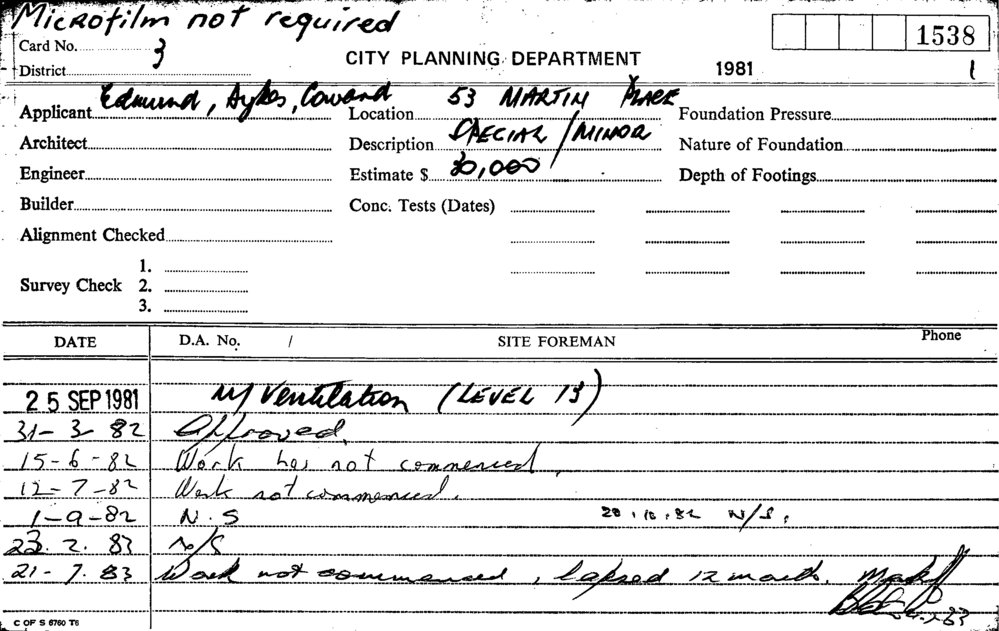 Microfilm not required
Card No. 3
CITY PLANNING DEPARTMENT
1538
District
1981
1
Applicant Edmund, Aykes, Coward
Location 53 MARTIN PLACE
Foundation Pressure
Architect
Description SPECIAL / MINOR
Nature of Foundation
Engineer
Estimate $ 30,000
Depth of Footings
Builder
Conc. Tests (Dates)
Alignment Checked
Survey Check
1.
2.
3.
DATE D.A. No. / SITE FOREMAN Phone
25 SEP 1981 M/ Ventilation (LEVEL 13)
31-3-82 Approved.
15-6-82 Work has not commenced.
12-7-82 Work not commenced.
1-9-82 N.S 20.10.82 N/S.
23.2.83 N/S
21-7.83 Work not commenced, lapsed 12 month.
C OF S 6760 T6